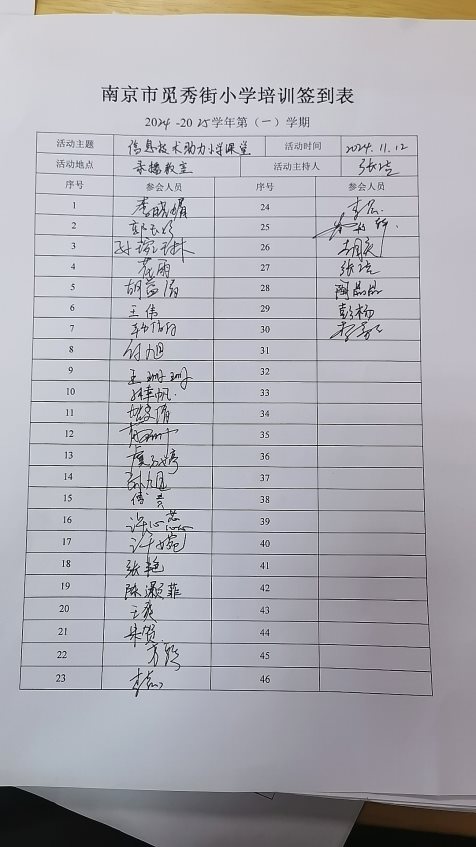 南京市觅秀街小学培训签到表
2024-2025学年第（一）学期
活动主题 信息技术助力小学课堂 活动时间 2024.11.12
活动地点 录播教室 活动主持人 张洁
序号 参会人员 序号 参会人员
1 李晓娟 24
2 25
3 孙琬琳 26 胡爽
4 花雨 27 张洁
5 胡 28 陶晶晶
6 王伟 29 彭杨
7 30
8 付旭 31
9 王珊珊 32
10 帆 33
11 倩 34
12 35
13 虞 婷 36
14 37
15 傅芸 38
16 许心蕊 39
17 许婉 40
18 张艳 41
19 陈灏菲 42
20 王爽 43
21 朱贺 44
22 方 45
23 46